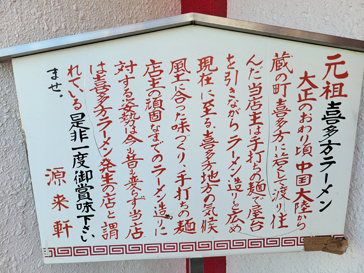 元祖喜多方ラーメン
大正のおわり頃中国大陸から
蔵の町喜多方に若く渡り住
んだ当店主は手打ちの麺で屋台
を引きながらラーメン造りを広め
現在に至る喜多方地方の気候
風土に合った味つくり、手打ちの麺
店主の頑固なまでのラーメン造りに
対する姿勢は今も昔も変らず当店
は喜多方ラーメン発生の店と謂
れている是非一度御賞味下さい
ませ。
源来軒